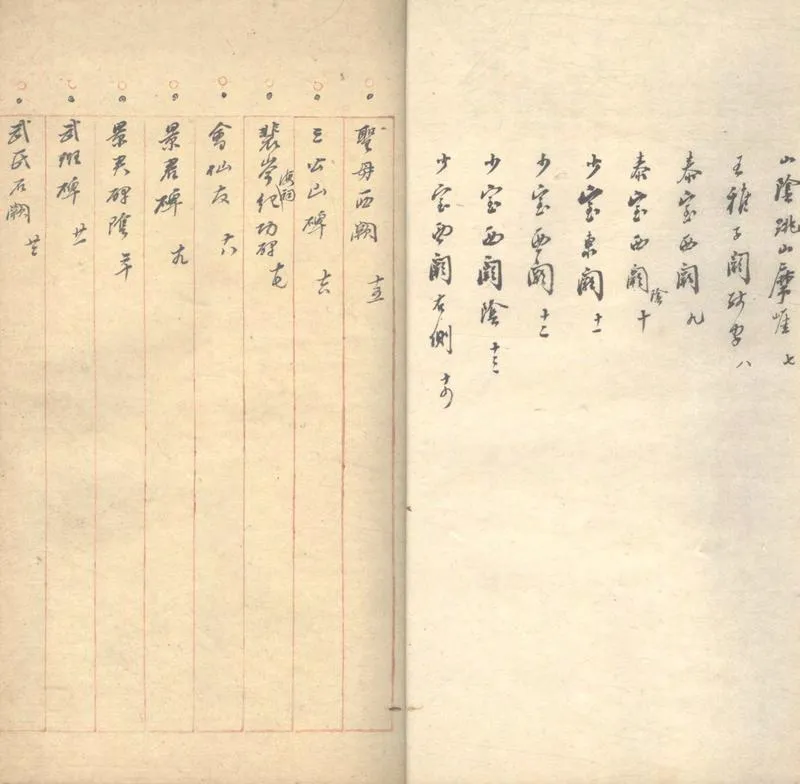 山陰跳山摩崖 七
王稚子闕殘字 八
泰室西闕 九
泰室西闕陰 十
少室東闕 十一
少室西闕 十二
少室西闕陰 十三
少室西闕右側 十四
聖母西闕 十五
三公山碑 十六
裴岑紀功碑 海祠 十七
會仙友 十八
景君碑 十九
景君碑陰 二十
武班碑 廿一
武氏石闕 廿二